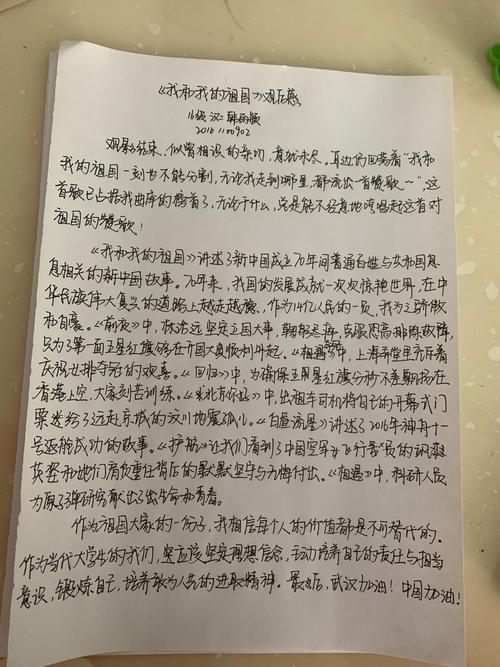 《我和我的祖国》观后感
16级 汉二 韩
20161100902
观影结束，似曾相识的亲切，意犹未尽。耳边仍回荡着“我和
我的祖国一刻也不能分割，无论我走到哪里都流出一首赞歌～”这
首歌已占据我曲库的榜首了，无论干什么，总是能不经意地哼唱起这首对
祖国的赞歌！
《我和我的祖国》讲述了新中国成立70年间普通百姓与共和国息
息相关的新中国故事。70年来，我国的发展成就一次次惊艳世界，在中
华民族伟大复兴的道路上越走越稳，作为14亿人民的一员，我为之骄傲
和自豪。《前夜》中，林治远坚定立国大事，克服恐高排除故障，
只为了第一面五星红旗能在开国大典顺利升起。《相遇》中，上海弄堂里齐齐着
庆祝女排夺冠的欢喜。《回归》中，为确保五星红旗分秒不差飘扬在
香港上空，大家刻苦训练。《北京你好》中，出租车司机将自己的开幕式门
票送给了远赴京城的汶川地震孤儿。《白昼流星》讲述了2016年神舟十一
号返航成功的故事。《护航》让我们看到了中国空军女飞行员的飒爽
英姿和她们肩负重任背后的默默坚守与无悔付出。《相遇》中，科研人员
为原子弹研究献出了生命和青春。
作为祖国大家的一份子，我相信每个人的价值都是不可替代的。
作为当代大学生的我们，更应该坚定理想信念，主动培养自己的责任与担当
意识，锻炼自己，培养敢为人先的进取精神。最后，武汉加油！中国加油！